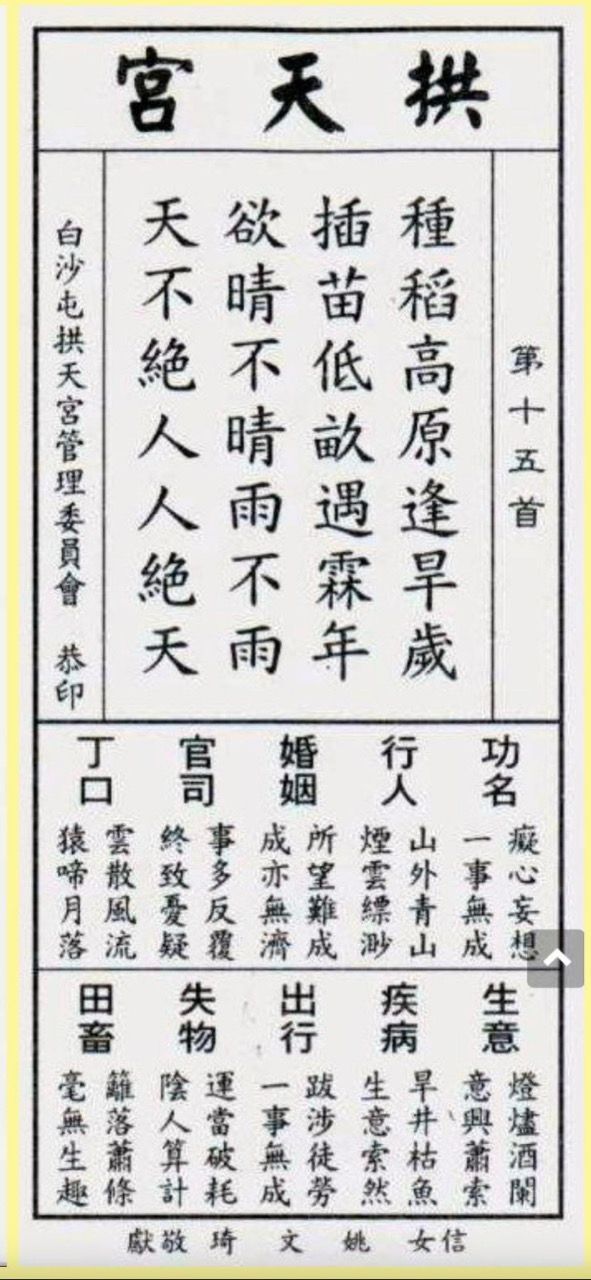 拱天宮
第十五首
種稻高原逢旱歲
插苗低畝遇霖年
欲晴不晴雨不雨
天不絕人人絕天
白沙屯拱天宮管理委員會 恭印
功名
癡心妄想
一事無成
行人
山外青山
煙雲縹渺
婚姻
所望難成
成亦無濟
官司
事多反覆
終致憂疑
丁口
雲散風流
猿啼月落
生意
燈燼酒闌
意興蕭索
疾病
旱井枯魚
生意索然
出行
跋涉徒勞
一事無成
失物
運當破耗
陰人算計
田畜
籬落蕭條
毫無生趣
信女 姚文琦 敬獻